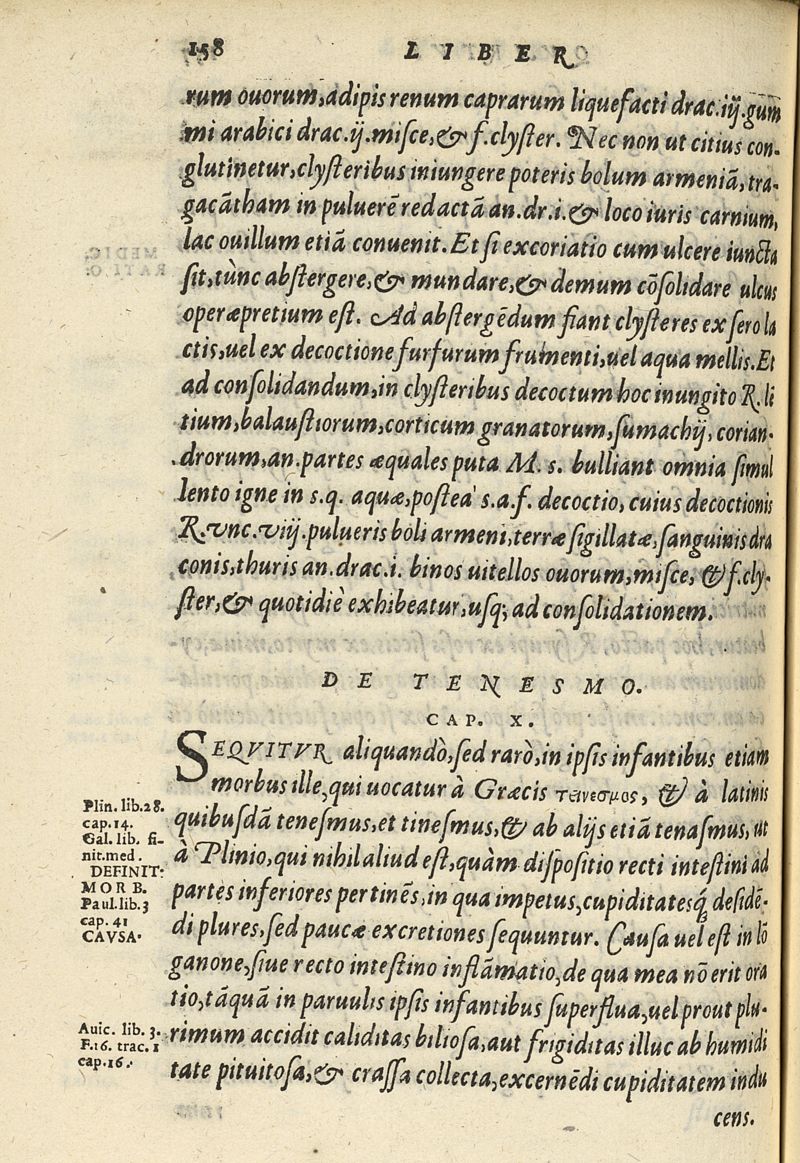 158 LIBER
rum ouorum, adipis renum caprarum liquefacti drac. iij. gum
mi arabici drac. ij. misce, & f. clyster. Nec non ut citius con-
glutinetur, clysteribus iniungere poteris bolum armeniã, tra-
gacãtham in puluerẽ redactã an. dr. i. & loco iuris carnium,
lac ouillum etiã conuenit. Et si excoriatio cum ulcere iuncta
sit, tùnc abstergere, & mundare, & demum cõsolidare ulcus
operæpretium est. Ad abstergẽdum fiant clysteres ex sero la
ctis, uel ex decoctione furfurum frumenti, uel aqua mellis. Et
ad consolidandum, in clysteribus decoctum hoc inungito ℞. li
tium, balaustiorum, corticum granatorum, sumachij, corian-
drorum, an. partes æquales puta M. s. bulliant omnia simul
lento igne in s. q. aquæ, posteà s. a. f. decoctio, cuius decoctionis
℞. vnc. viij. pulueris boli armeni, terræ sigillatæ, sanguinis dra
conis, thuris an. drac. i. binos uitellos ouorum, misce, & f. cly-
ster, & quotidiè exhibeatur, usq; ad consolidationem.
DE TENESMO.
CAP. X.
SEQVITVR aliquandò, sed rarò, in ipsis infantibus etiam
morbus ille, qui uocatur à Græcis τεινεσμος, & à latinis
quibusdã tenesmus, et tinesmus, & ab alijs etiã tenasmus, ut
à Plinio, qui nihil aliud est, quàm dispositio recti intestini ad
partes inferiores pertinẽs, in qua impetus, cupiditatesq́ desidẽ-
di plures, sed paucæ excretiones sequuntur. Causa uel est in lõ
ganone, siue recto intestino inflãmatio, de qua mea nõ erit ora
tio, tãquã in paruulis ipsis infantibus superflua, uel prout plu-
rimum accidit caliditas biliosa, aut frigiditas illuc ab humidi
tate pituitosa, & crassa collecta, excernẽdi cupiditatem indu
cens.
Plin. lib. 28.
cap. 14.
Gal. lib. fi-
nit. med.
DEFINIT:
MORB.
Paul. lib. 3
cap. 41
CAVSA.
Auic. lib. 3.
F. 16. trac. 1
cap. 16.